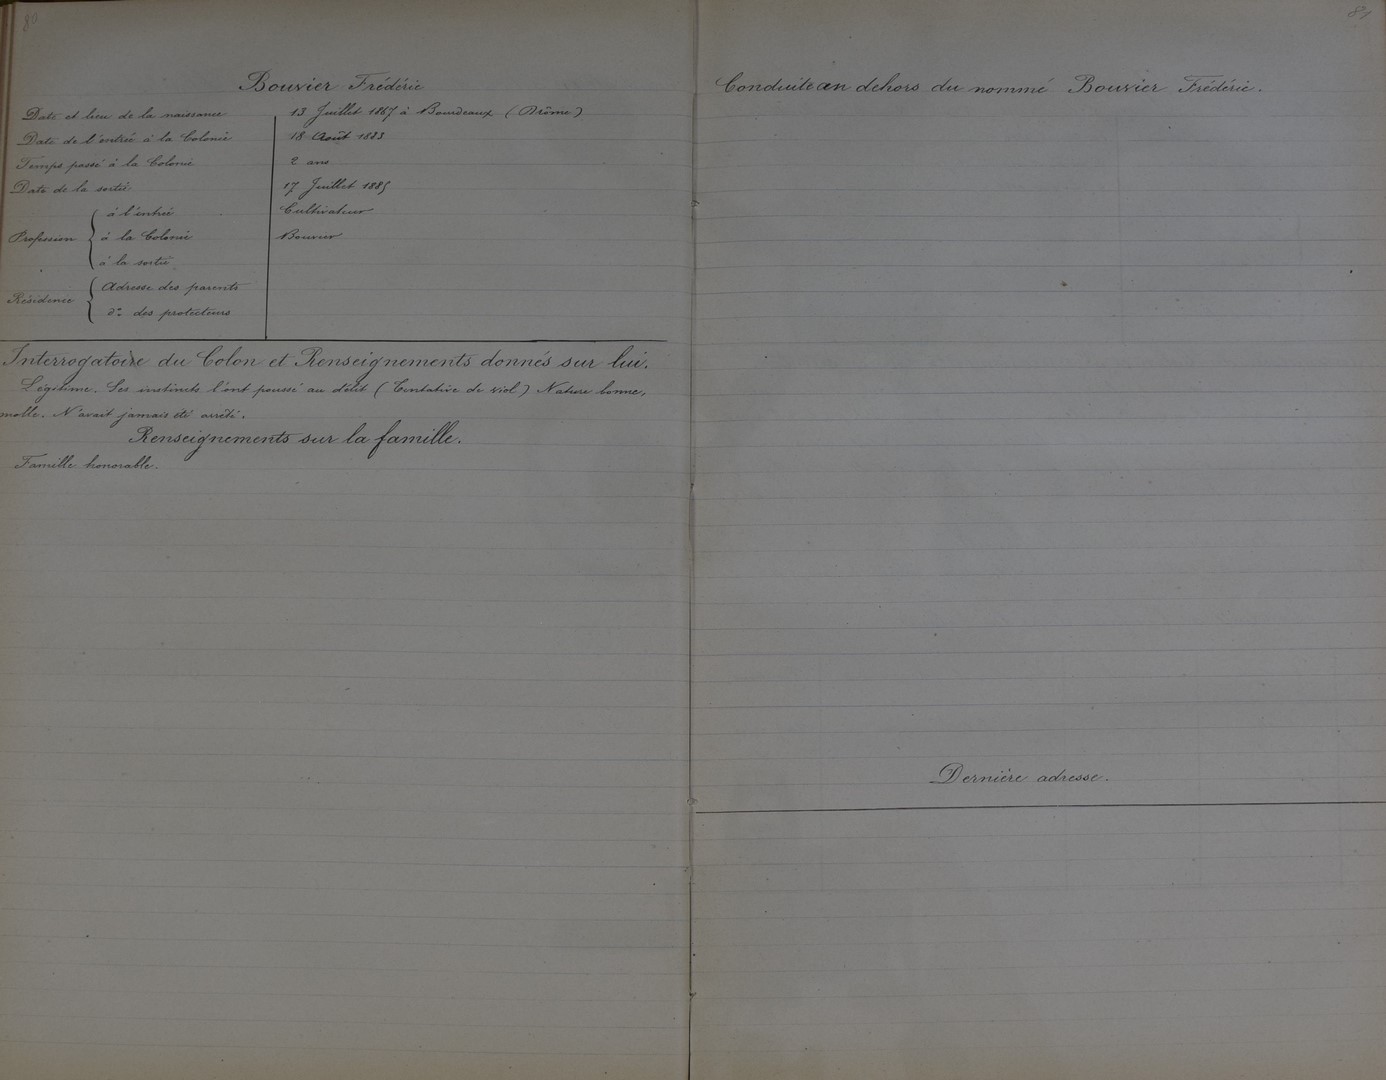 80
Bouvier Frédéric
Date et lieu de la naissance 13 Juillet 1867 à Bourdeaux (Drôme)
Date de l'entrée à la Colonie 18 Août 1883
Temps passé à la Colonie 2 ans
Date de la sortie 17 Juillet 1885
Profession à l'entrée Cultivateur
à la Colonie Bouvier
à la sortie
Résidence Adresse des parents
do. des protecteurs
Interrogatoire du Colon et Renseignements donnés sur lui.
Légitime. Ses instincts l'ont poussé au délit (Tentative de viol) Nature bonne,
molle. N'avait jamais été arrêté.
Renseignements sur la famille.
Famille honorable.
81
Conduite en dehors du nommé Bouvier Frédéric.
Dernière adresse.